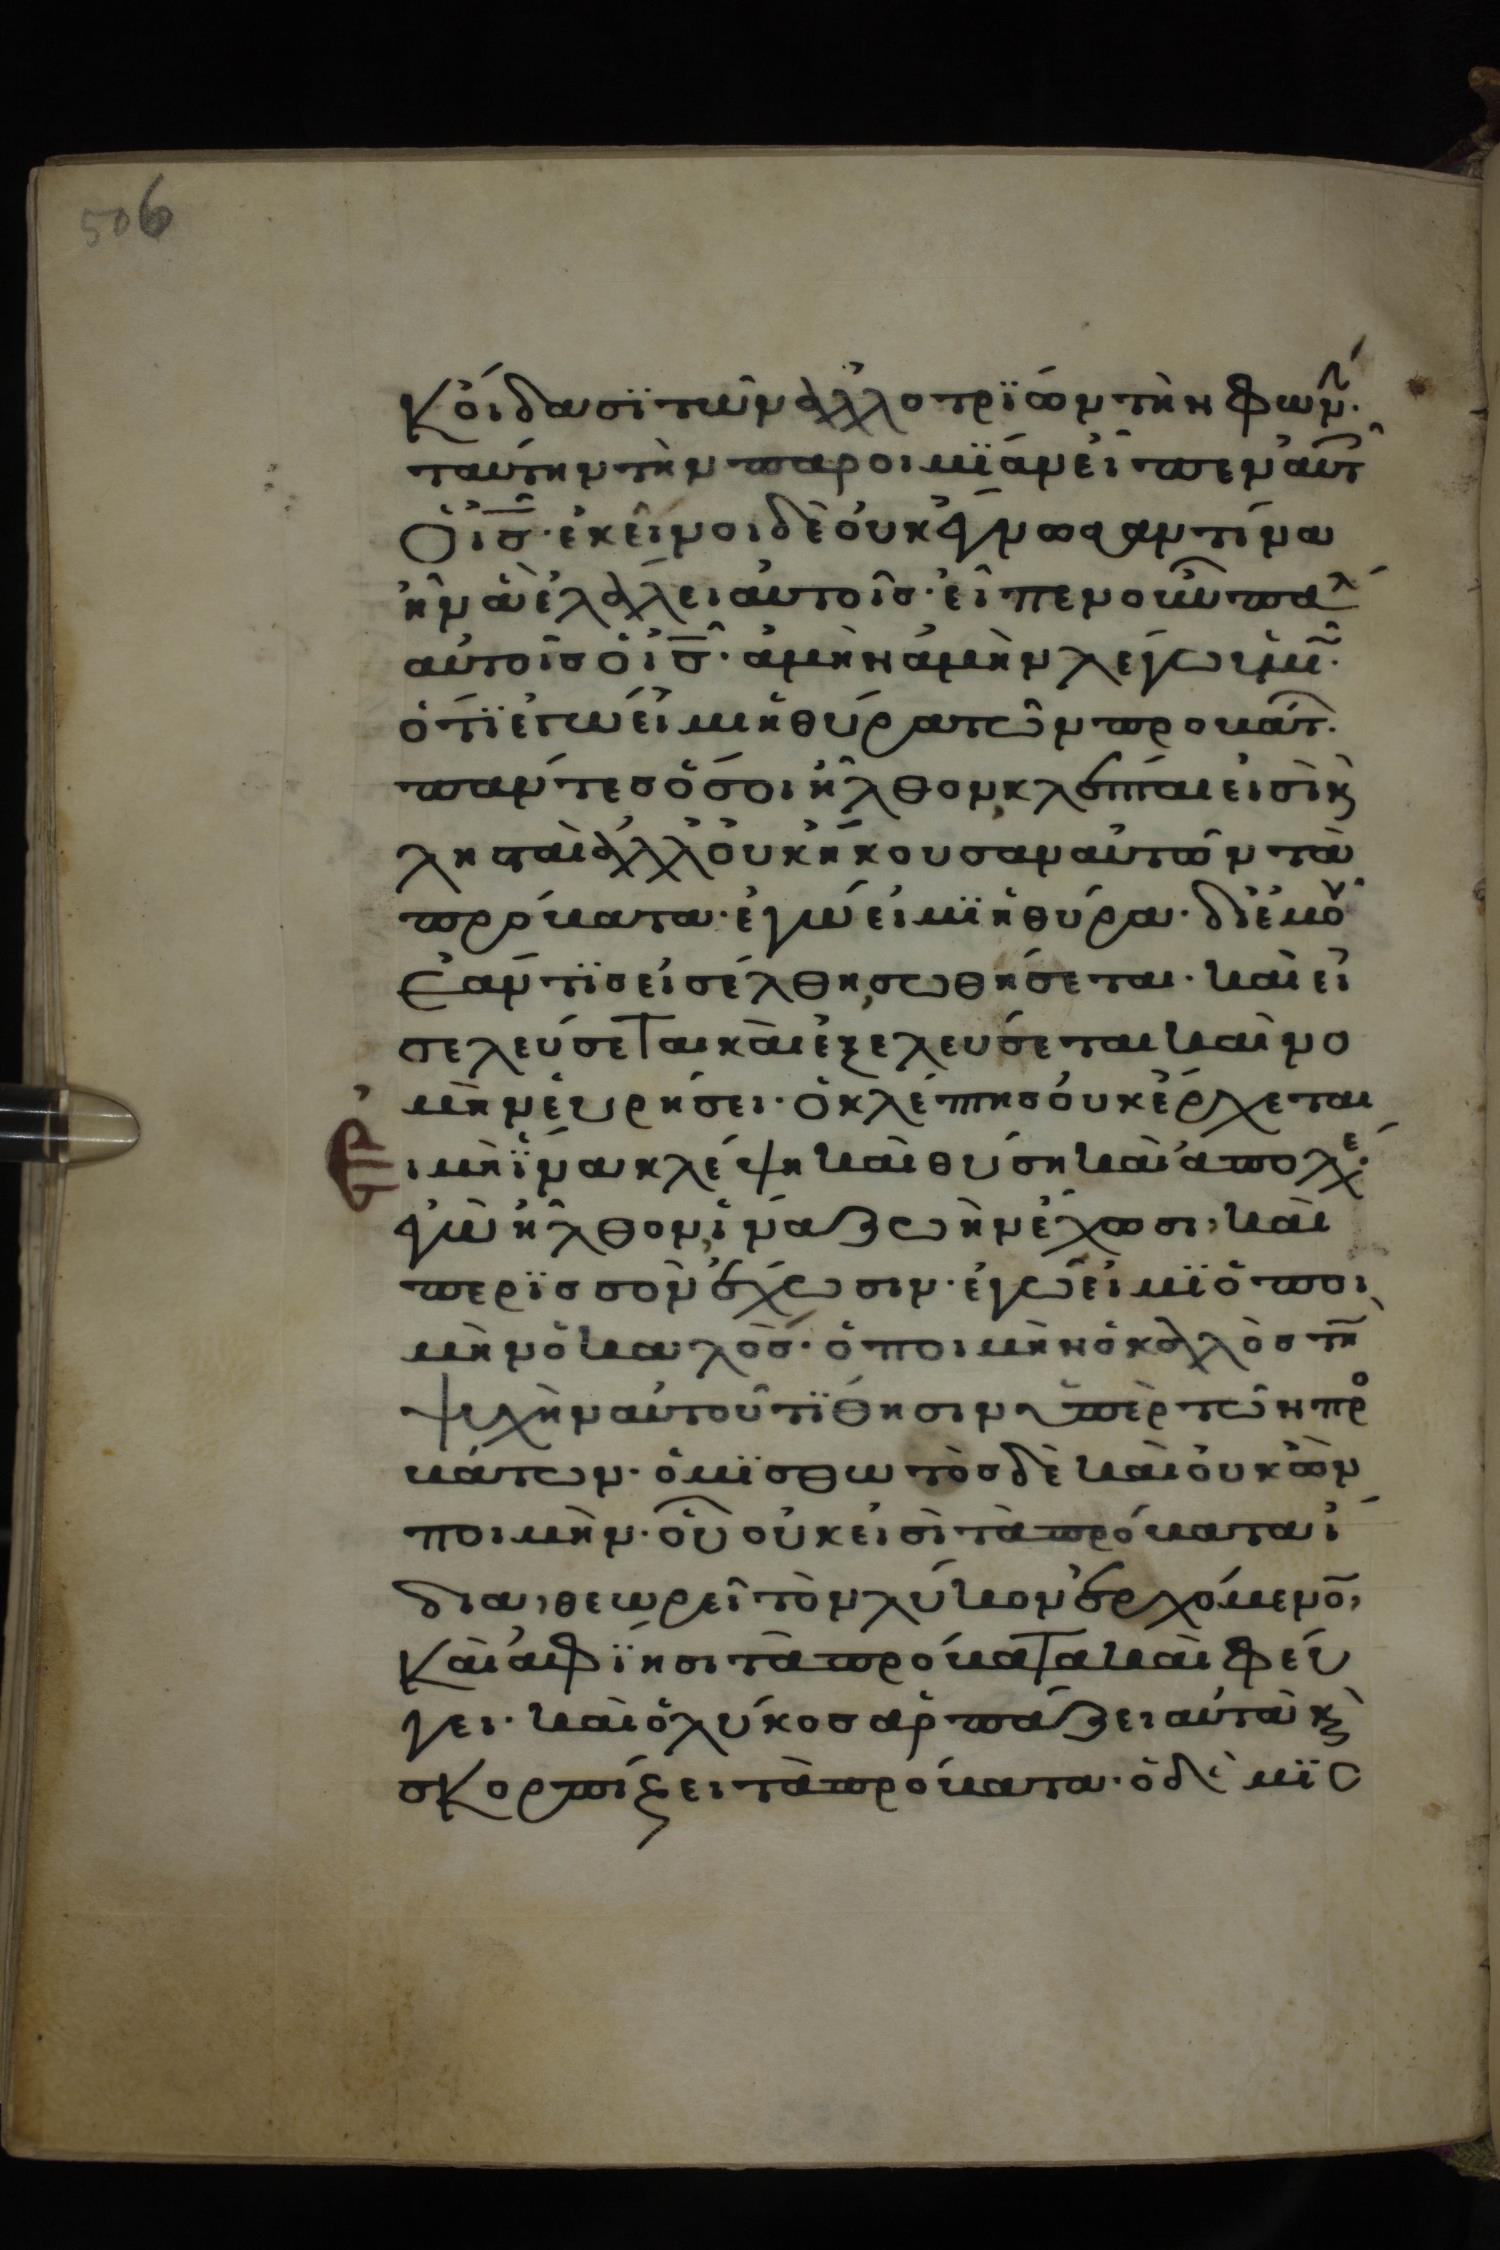 506
κ ὀίδασϊ τῶν ἀλλοτρϊων τὴν φων́.
ταύτην τὴν παροιμϊάν εἶπεν αὐτ
ὁ ισ̅· ἐκεῖνοι δὲ ὀυκ ἔγνωσαν τίνα
ἦν ἃ ἐλάλει αὐτοῖσ· εἶπεν οὖν παλ
αὐτοῖσ ὁ ισ̅· ἀμὴν ἀμὴν λέγω ὑμῖ.
ὅτϊ ἐγώ εἰμι ἡ θύρα τῶν προβάτ.
πάντεσ ὅσοι ἦλθον, κλέπται εἰσὶ κ
λησταὶ ἀλλ ὀυκ ἤκουσαν αὐτῶν τὰ
πρόβατα· ἐγώ εἰμϊ ἡ θύρα· δι ἐμοῦ
ἐάν τϊσ εἰσέλθη, σωθήσεται· καὶ εἰ
σελεύσεται καὶ ἐξελεύσεται καὶ νο
μὴν ἑυρήσει· ὁ κλέπτησ ὀυκ ἔρχεται
ι μὴ ἵνα κλέψη καὶ θύση καὶ ἀπολέ.
ἐγὼ ἦλθον, ἵνα ζωὴν ἔχωσι, καὶ
περϊσσὸν ἔχωσιν· ἐγώ εἰμϊ ὁ ποι
μὴν ὁ καλόσ· ὁ ποιμὴν ὁ καλλὸσ τὴ
ψυχὴν αὐτοῦ τϊθησιν ὑπὲρ τῶν προ
βάτων· ὁ μϊσθωτὸσ δὲ καὶ ὀυκ ὢν
ποιμὴν· οὗ οὐκ εἰσὶ τὰ πρόβατα ἰ
δια, θεωρεῖ τὸν λύκον ἐρχόμενο,
καὶ ἀφϊησι τὰ πρόβατα καὶ φεύ
γει· καὶ ὁ λύκοσ ἁρπάζει αὐτὰ κ
σκορπίζει τὰ πρόβατα· ὁ δὲ μϊσ